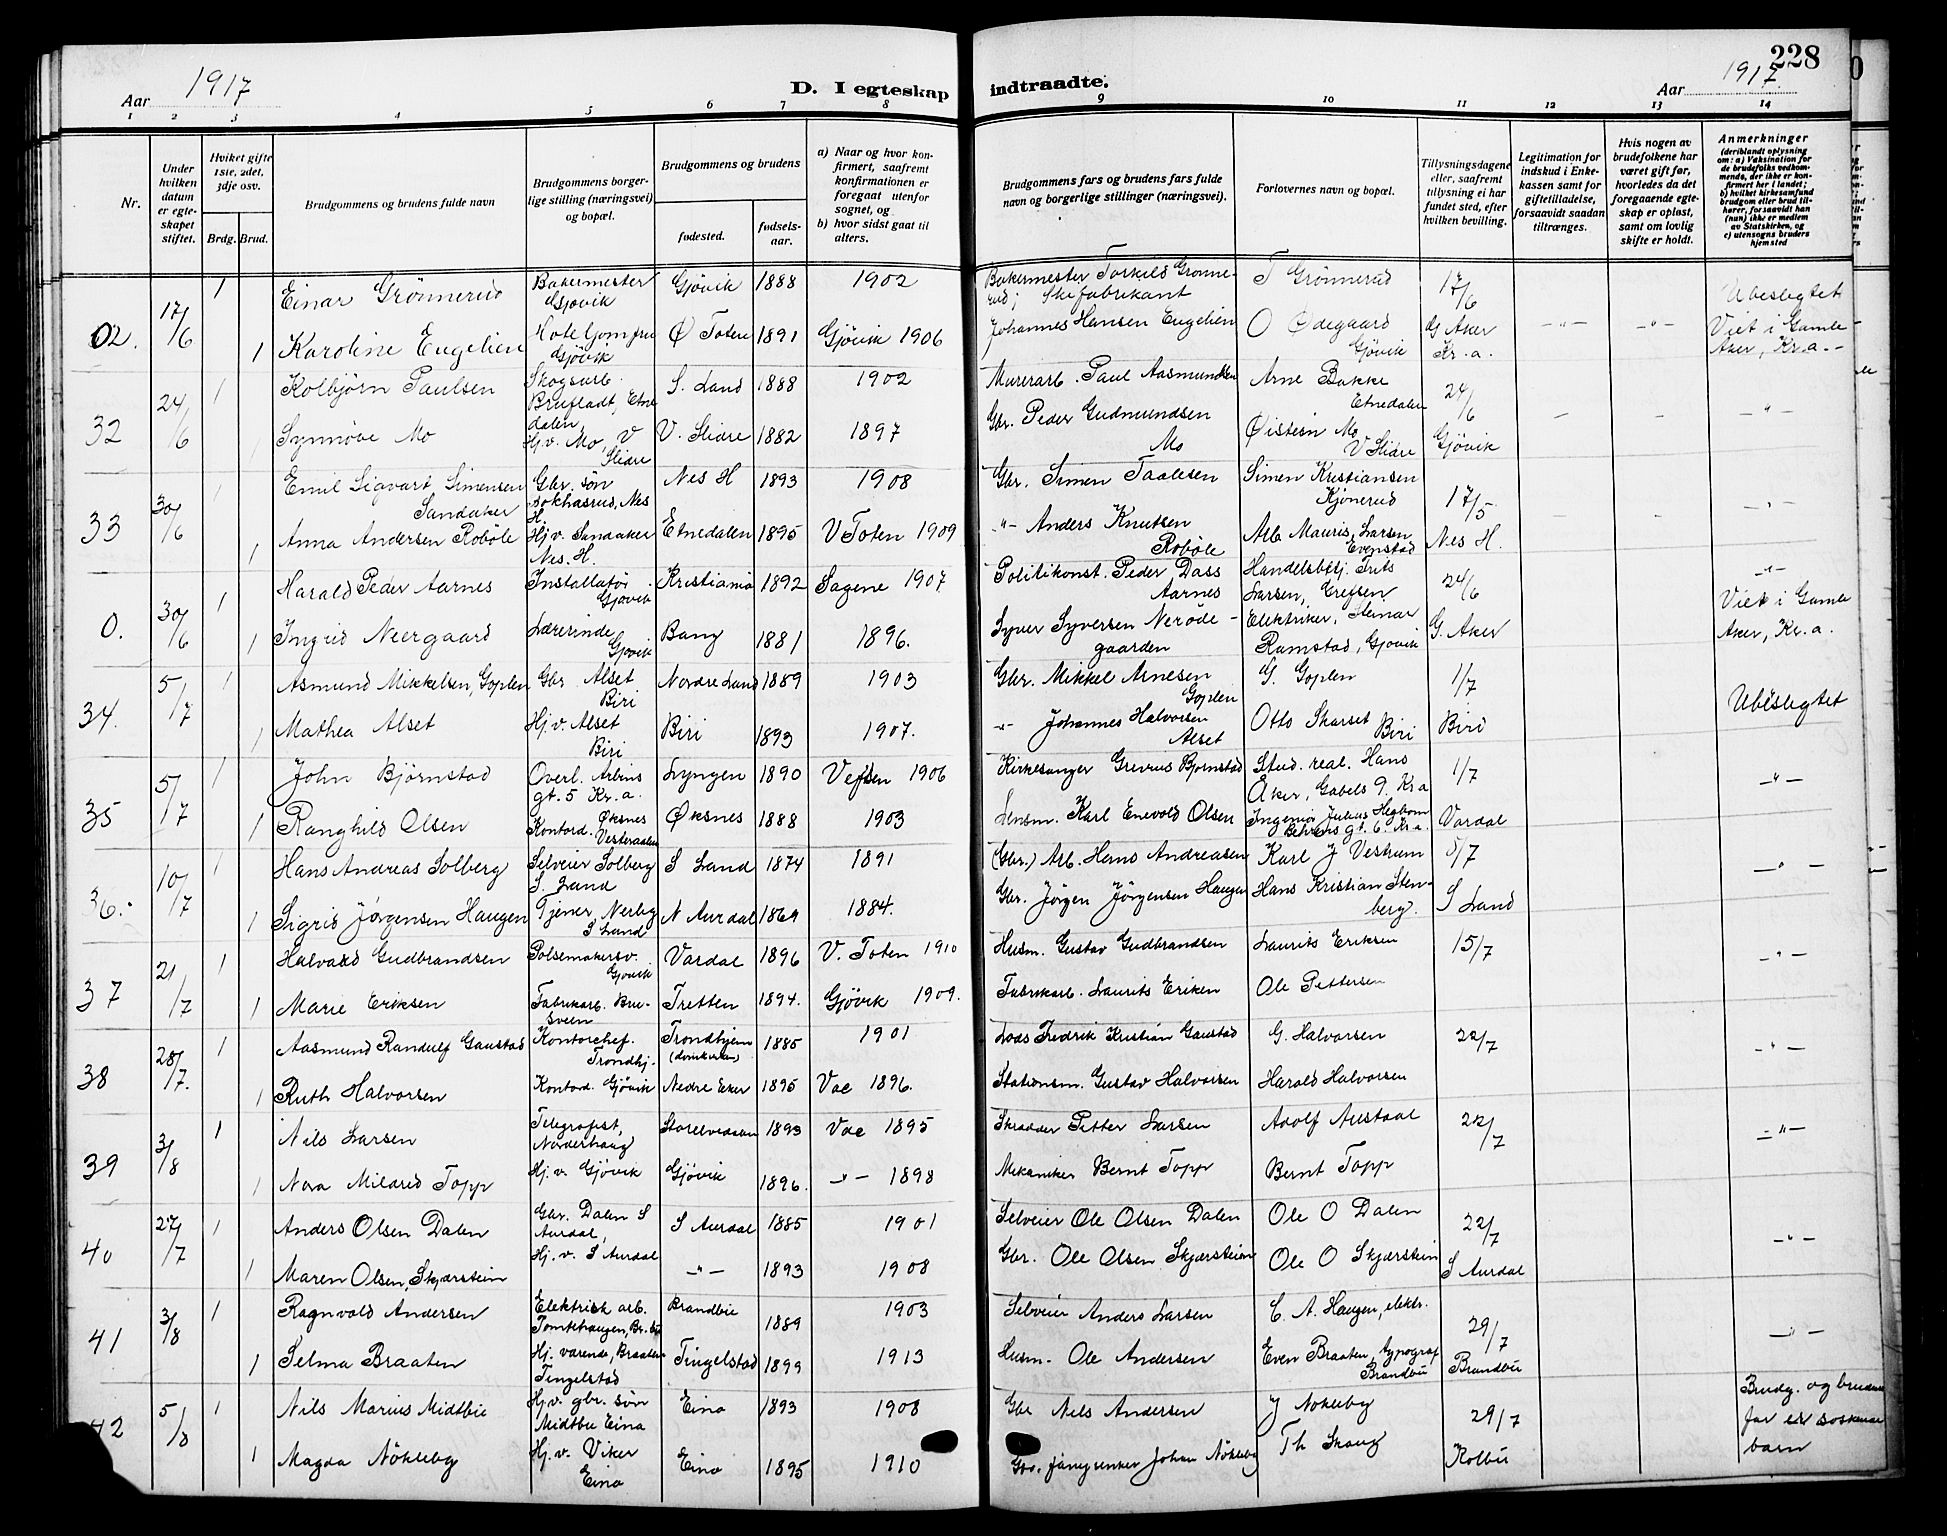 228
Aar 1917
D. I egteskap indtraadte.
Aar 1917.
1 2 3 4 5 6 7 8 9 10 11 12 13 14
Nr.
Under hvilken datum er egteskapet stiftet.
Hviket gifte 1ste, 2det, 3dje osv.
Brdg. Brud.
Brudgommens og brudens fulde navn
Brudgommens borgerlige stilling (næringsvei) og bopæl.
Brudgommens og brudens
fødested.
fødselsaar.
a) Naar og hvor konfirmert, saafremt konfirmationen er foregaat utenfor sognet, og
b) hvor sidst gaat til alters.
Brudgommens fars og brudens fars fulde navn og borgerlige stillinger (næringsvei).
Forlovernes navn og bopæl.
Tillysningsdagene eller, saafremt tillysning ei har fundet sted, efter hvilken bevilling.
Legitimation for indskud i Enkekassen samt for giftetilladelse, forsaavidt saadan tiltrænges.
Hvis nogen av brudefolkene har været gift før, hvorledes da det foregaaende egteskap er opløst, samt om lovlig skifte er holdt.
Anmerkninger
(deriblandt oplysning om: a) Vaksination for de brudefolks vedkommende, der ikke er konfirmert her i landet; b) hvilket kirkesamfund brudgom eller brud tilhører, forsaavidt han (hun) ikke er medlem av Statskirken, og c) utensogns bruders hjemsted
02. 17/6 1 Einar Grönnerud Bakermester Gjövik Gjövik 1888 1902 Bakermester Torkild Grönnerud; Skifabrikant T Grönnerud 17/6 Ubeslegtet
1 Karoline Engelien Hotelljomfru Gjövik Ø Toten 1891 Gjövik 1906 Johannes Hansen Engelien O Ødegaard Gjövik G Aker Kr.a. -"- -"- Viet i Gamle Aker, Kr.a.-
32 24/6 1 Kolbjörn Paulsen Skogsarb. Brufladt, Etnedalen, S. Land 1888 1902 Murerarb. Paul Aasmundsen Arne Bakke Etnedalen 24/6
1 Synnöve Mo Hj.v. Mo, V Slidre V. Slidre 1882 1897 Gbr. Peder Gudmundsen Mo Øistein Mo V Slidre Gjövik - - -"-
33 30/6 1 Emil Sigvart Simensen Sandaker Gbr. sön Bokhasrud, Nes H. Nes H 1893 1908 Gbr. Simen Taalesen Simen Kristiansen Kjönerud 17/5
1 Anna Andersen Robøle Hj.v. Sandaker Nes. H. Etnedalen 1895 V Toten 1909 -"- Anders Knutsen Robøle Arb Mauris Larsen Evenstad Nes H. - - -"-
0. 30/6 1 Harald Peder Aarnes Installatör Gjövik Kristiania 1892 Sagene 1907 Politikonst. Peder Dass Aarnes Handelsbetj. Frits Larsen, Grefsen 24/6 -"-
1 Ingrid Neergaard Lærerinde Gjövik Bang 1881 1896. Syver Syversen Neröde-gaarden Elektriker, Steinar Ramstad, Gjövik G. Aker Viet i Gamle Aker, Kr.a.
34. 5/7 1 Asmund Mikkelsen, Goplen Gbr Alset Biri Nordre Land 1889 1903 Gbr. Mikkel Arnesen Goplen G. Goplen 1/7
1 Mathea Alset Hj.v. Alset Biri Biri 1893 1907. -"- Johannes Halvorsen Alset Otto Skarset Biri Biri Ubeslegtet
35 5/7 1 John Bjørnstad Overl. Arbins gt. 5 Kr.a. Lyngen 1890 Vefsen 1906 Kirkesanger Grevrus Bjørnstad Stud. real. Hans Aker, Gabels g. Kr a 1/7 -"-
1 Ranghild Olsen Kontord. Øksnes Vesteraalen Øksnes 1888 1903 Lensm. Karl Enevold Olsen Ingeniør Julius Hegbom Behrens gt. 6. Kr.a. Vardal
36. 10/7 1 Hans Andreas Solberg Selveier Solberg S. Land S Land 1874 1891 (Gbr.) Arb. Hans Andreasen Karl J Vestrum 8/7 -"-
1 Sigrid Jørgensen Haugen Tjener, Nerby S Land N Aurdal 1869 1884. Gbr. Jörgen Jörgensen Haugen Hans Kristian Stenberg. S Land
37 21/7 1 Halvard Gudbrandsen Pölsemakersv. Gjövik Vardal 1896 V. Toten 1910 Husm. Gustav Gudbrandsen Laurits Eriksen 15/7 -"-
1 Marie Eriksen Fabrikarb. Brusveen Tretten 1894. Gjövik 1909. Fabrikarb. Laurits Eriken Ole Pettersen
38 28/7. 1 Aasmund Randulf Gaustad Kontorchef. Trondhj. Trondhjem (domkirken) 1885 1901 Lods Fredrik Kristian Gaustad G. Halvorsen 22/7 -"-
1 Ruth Halvorsen Kontord. Gjövik Nedre Eker 1895 Vac 1896. Stationsm. Gustav Halvorsen Harald Halvorsen
39 3/8 1 Nils Larsen Telegrafist, Norderhaug Storelvedalen 1893 Vac 1895 Skrædder Petter Larsen Adolf Austdal 22/7 -"-
1 Nora Mildred Topp Hj.v. Gjövik Gjövik 1896. -"- 1898 Mekaniker Bernt Topp Bernt Topp
40 27/7 1 Anders Olsen Dalen Gbr. Dalen S Aurdal, S Aurdal 1885 1901 Selveier Ole Olsen Dalen Ole O Dalen 22/7 -"-
1 Maren Olsen, Skjærstein Hj.v. S Aurdal -"- 1893 1908 Gbr. Ole Olsen Skjærstein Ole O Skjærstein S Aurdal
41 3/8 1 Ragnvald Andersen Elektrisk arb. Tomtehaugen, Br.bu Brandbu 1889 1903 Selveier Anders Larsen C. A. Haugen, elektr. 29/7 -"-
1 Selma Braaten Hj. værende, Braaten Tingelstad Tingelstad 1899 1913 Husm. Ole Andersen Even Braaten, typograf Brandbu Brandbu
42 5/8 1 Nils Marius Midtbu Hj.v. gbr. sön Midtbu Eina Eina 1893 1908 Gbr Nils Andersen J Nøkleby 29/7 Brudg. og brudens far er søskende barn
1 Magda Nökleby Hj.v. Viker Eina Eina 1895 1910 Johan Nökleby Th Skaug Kolbu